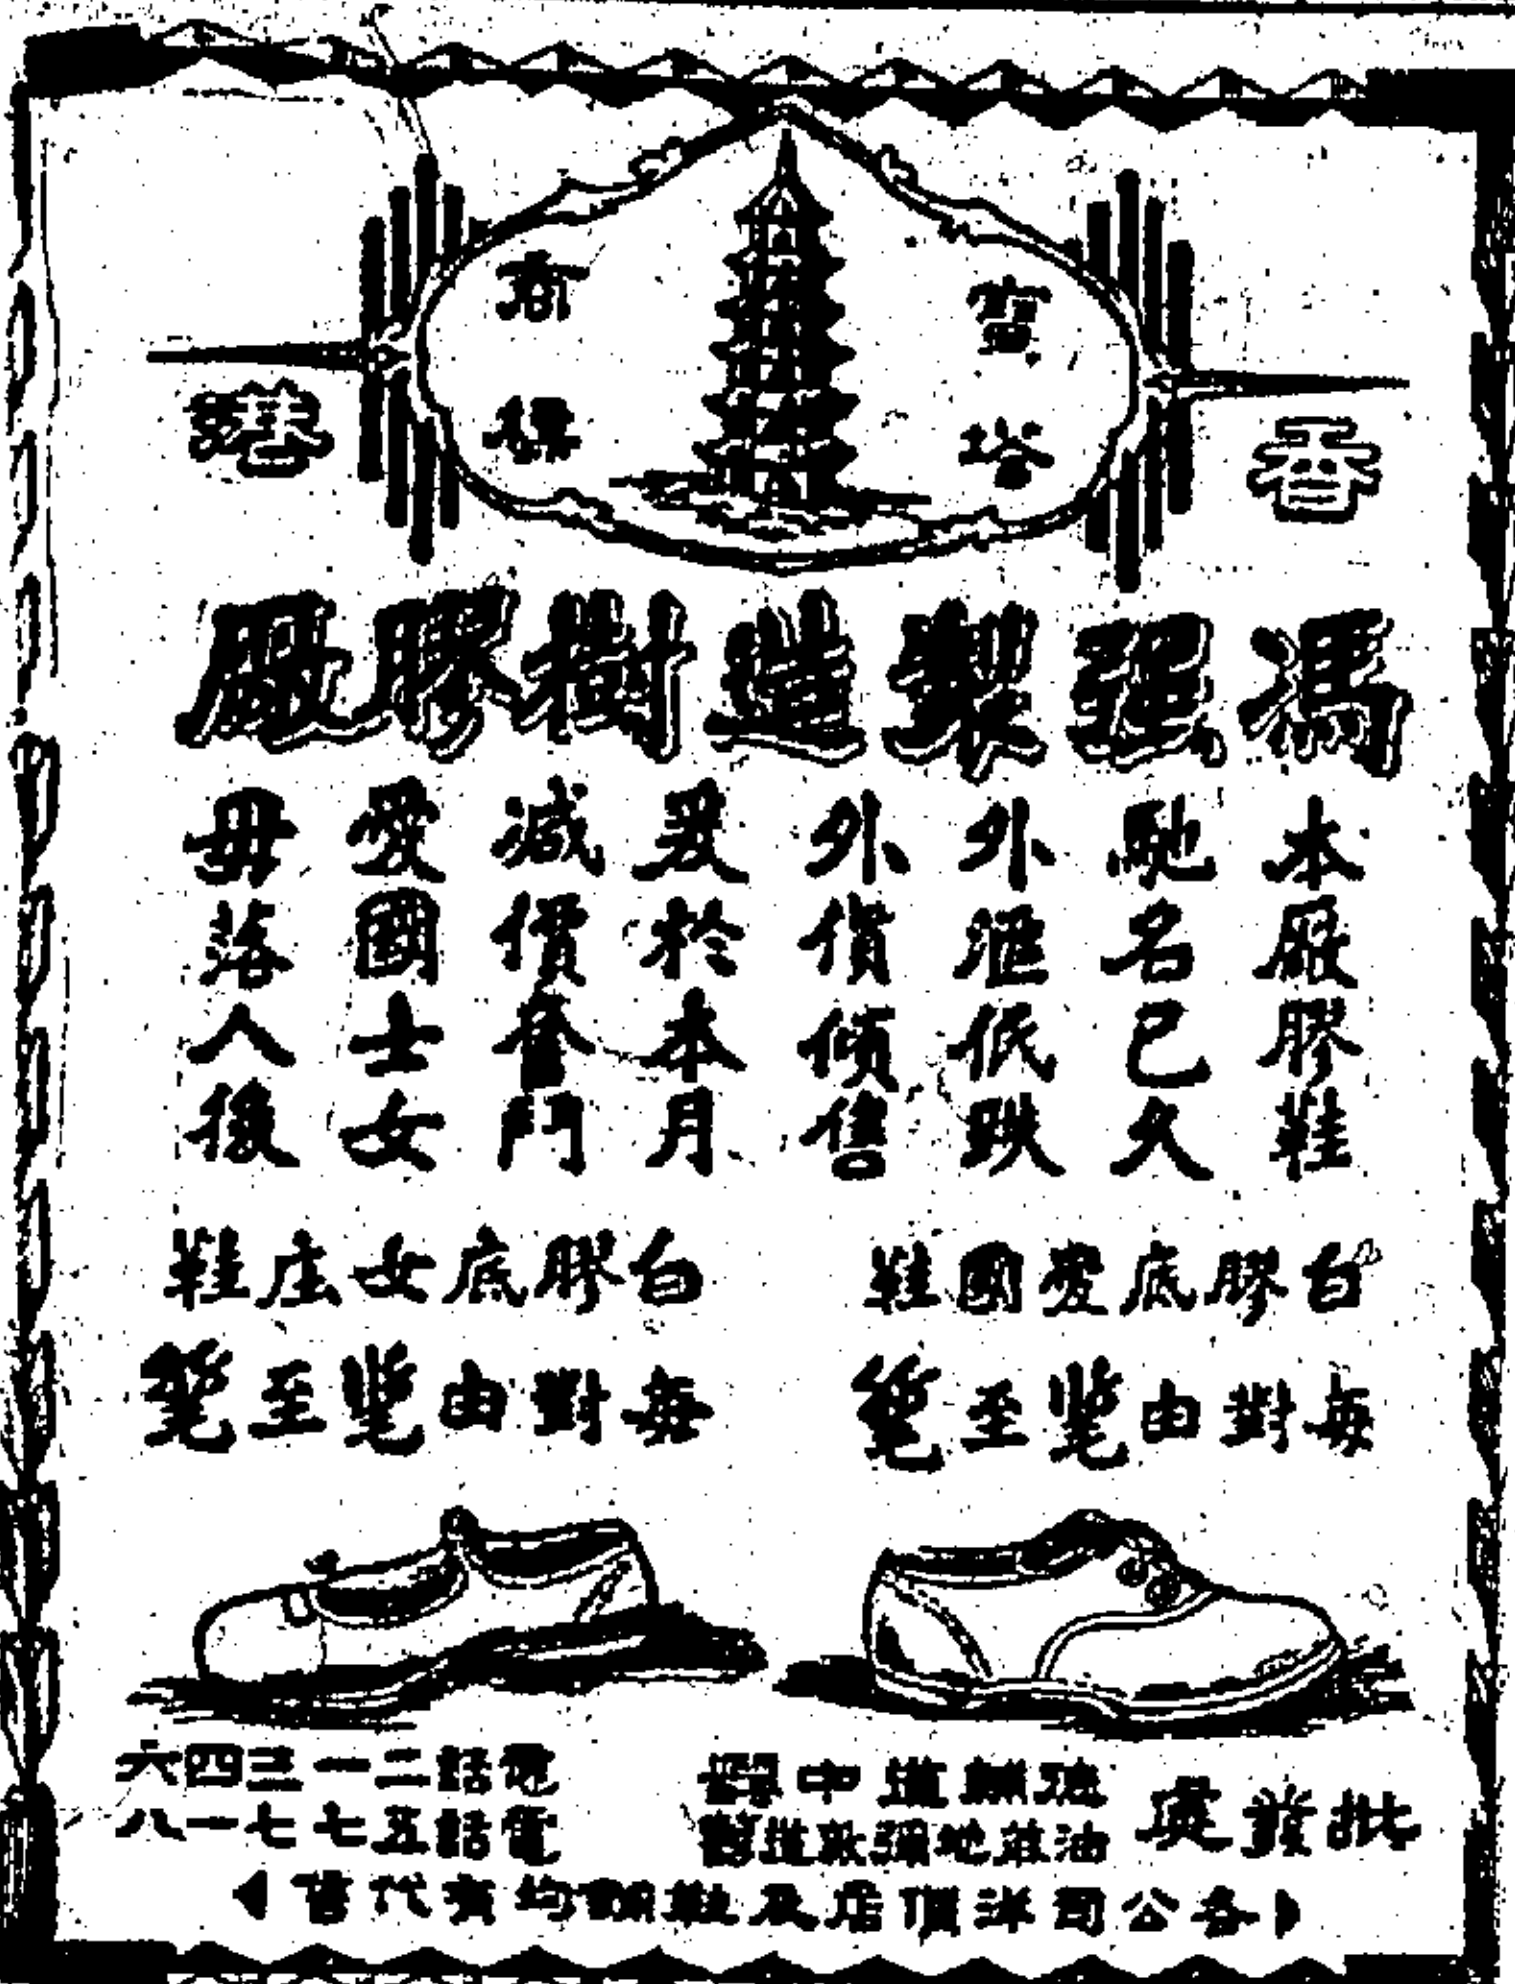 寶塔
商標
香港
馮强製造樹膠廠
本廠膠鞋
馳名已久
外滙低跌
外貨傾售
爰於本月
減價奮鬥
愛國士女
毋落人後
白膠底愛國鞋
每對由 至
白膠底女庄鞋
每對由 至
批發處
德輔道中
油蔴地彌敦道
電話二一三四六
電話五七七一八
各公司洋貨店及鞋 均有代售